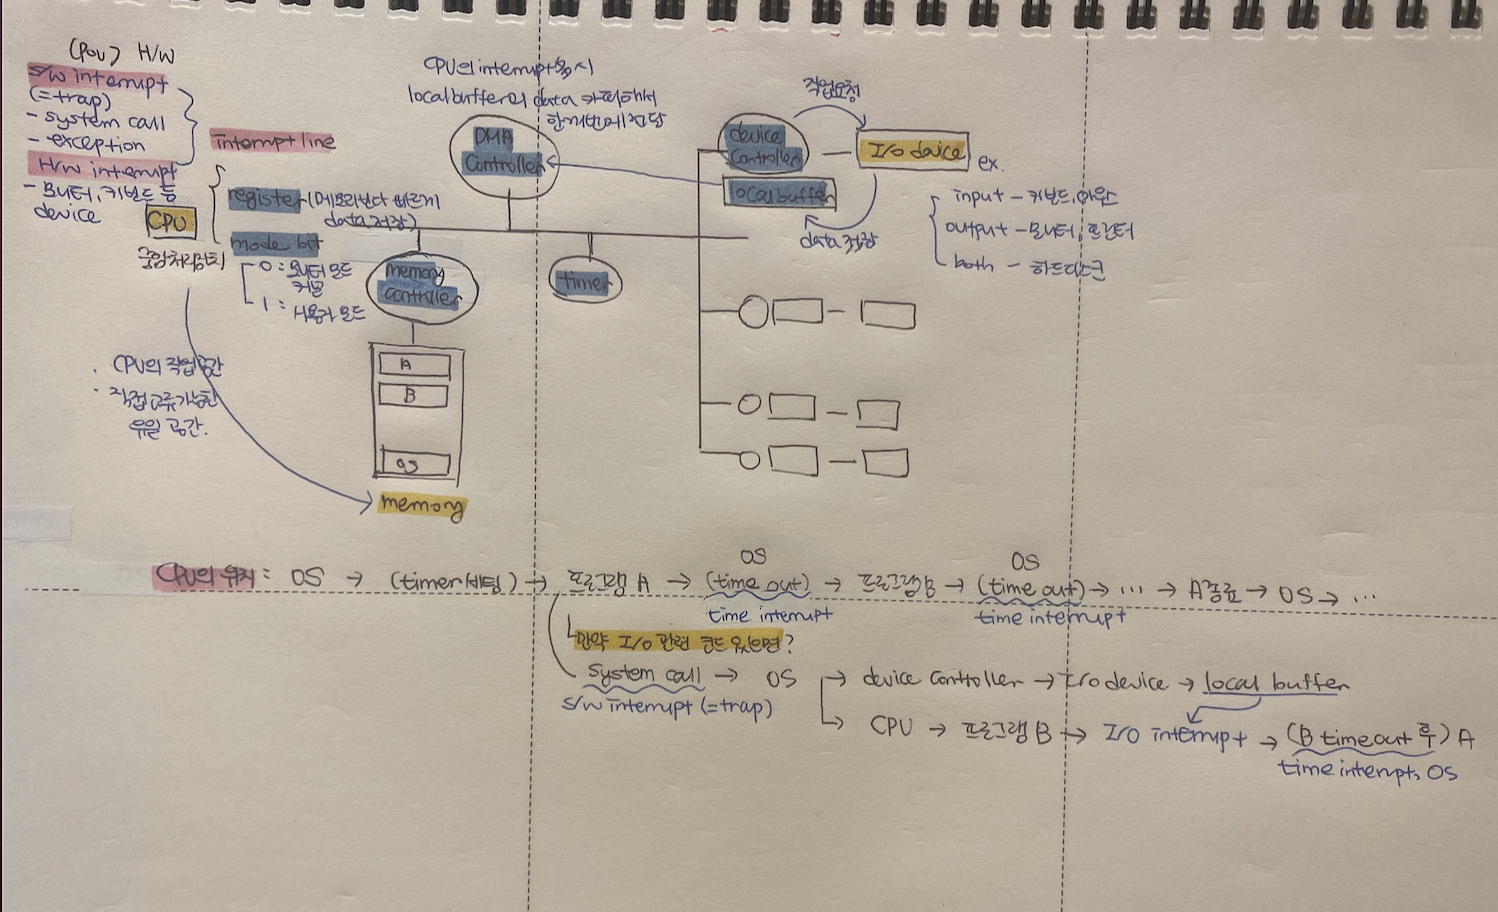 (Pov) H/W
S/W interrupt
(=trap)
- system call
- exception
H/W interrupt
- 모니터, 키보드 등
device
CPU
중앙처리장치
interrupt line
register (메모리보다 빠르게
data 저장)
mode bit
0 : 모니터 모드
커널
1 : 사용자 모드
CPU의 interrupt 동시
local buffer의 data 카피해서
한꺼번에 전달
DMA
Controller
memory
controller
timer
device
Controller
local buffer
작업요청
I/O device
data 저장
ex.
input - 키보드, 마우스
output - 모니터, 프린터
both - 하드디스크
A
B
OS
memory
· CPU의 작업공간
· 직접 교류가능한
유일 공간.
CPU의 위치 : OS → (timer 세팅) → 프로그램 A → (time out) → 프로그램 B → (time out) → ... → A종료 → OS → ...
OS
OS
time interrupt
time interrupt
만약 I/O 관련 코드 있으면?
system call → OS → device controller → I/O device → local buffer
S/W interrupt (=trap)
→ CPU → 프로그램 B → I/O interrupt → (B timeout 후) A
time interrupt, OS